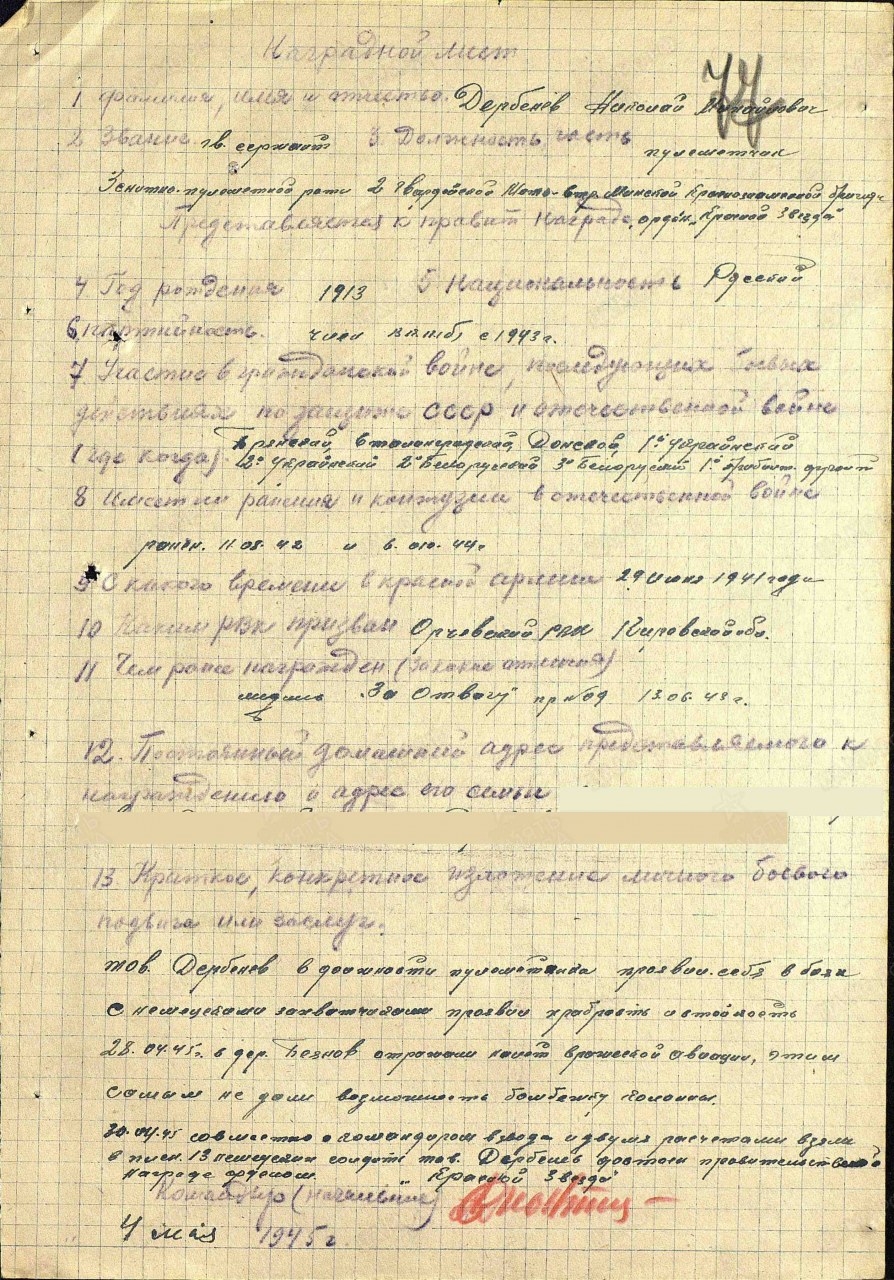 Наградной лист
77
1 Фамилия, имя и отчество. Дербенёв Николай Михайлович
2 Звание гв. сержант 3 Должность, часть пулеметчик
Зенитно-пулеметной роты 2 Гвардейской Мото-стр. Минской Краснознаменной бригады
Представляется к правит награде „орден „Красной Звезда"
4 Год рождения 1913 5 Национальность Русский
6. партийность. член ВКП(б) с 1943 г.
7. Участие в гражданской войне, последующих боевых
действиях по защите СССР и отечественной войне
(где когда). Брянский, Сталинградский, Донской, 1й Украинский
2й Украинский 2й Белорусский 3й Белоруский 1й Прибалт. фронт
8 Имеет ли ранения и контузии в отечественной войне
ранен. 11.08.42 и 6. 44г
9 С какого времени в красной армии 29 июня 1941 года
10 Каким РВК призван РВК Кировской обл.
11 Чем ранее награжден (за какие отличия)
медаль „За Отвагу" пр №09 13.06.43 г.
12. Постоянный домашний адрес представляемого к
награждению и адрес его семьи
13. Краткое, конкретное изложение личного боевого
подвига или заслуг.
тов. Дербенев в должности пулеметчика проявил себя в боях
с немецкими захватчиками проявил храбрость и стойкость
28.04.45г. в дер. отражали налет вражеской авиации, этим
самым не дали возможность бомбежку колонны.
30.04.45 совместно с командиром взвода и двумя расчетами взяли
в плен. 13 немецких солдат тов. Дербенев достоен правительственной
награде орденом „Красной Звезда"
Командир (начальник)
4 мая 1945 г.